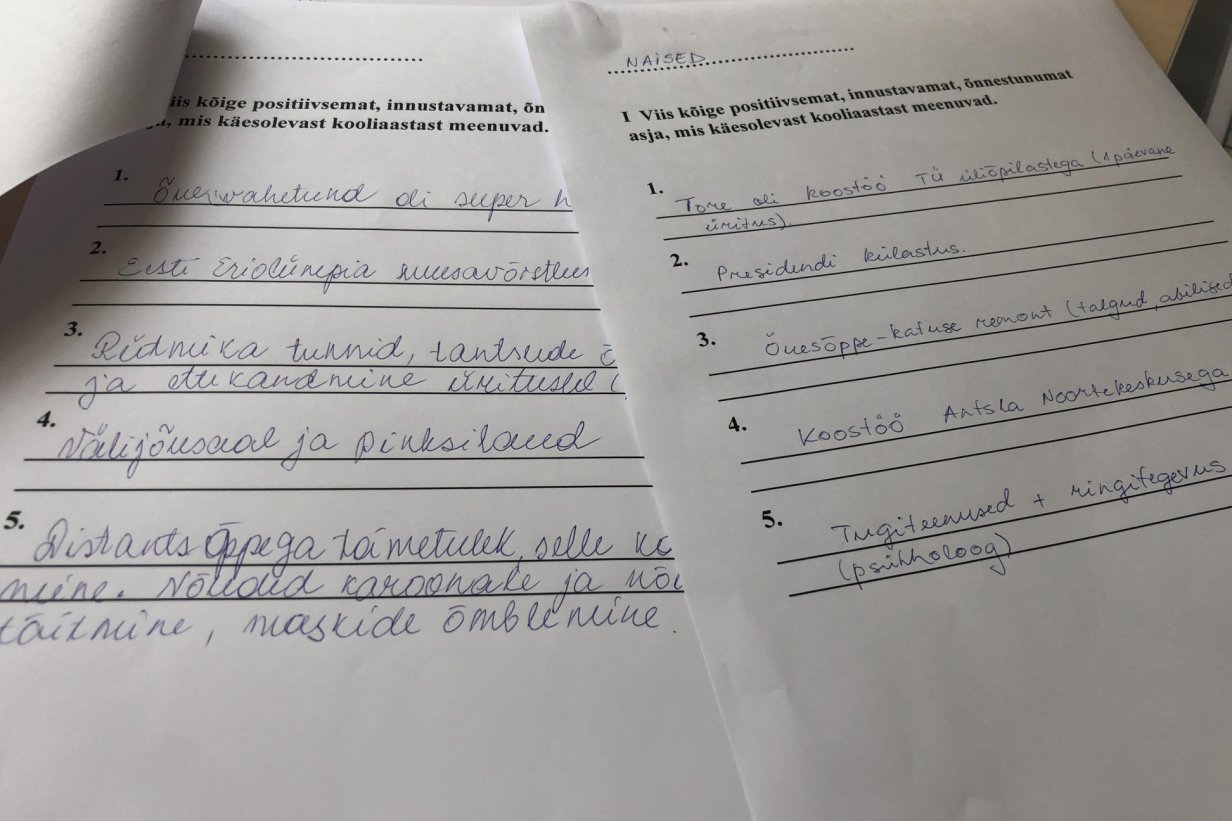 iis kõige positiivsemat, innustavamat, õn
, mis käesolevast kooliaastast meenuvad.
1. Õuevahetund oli super h
2. Eesti Eriolümpia suusavõistlus
3. Rütmika tunnid, tantsude
ja ettekandmine üritustel (
4. Välijõusaal ja pinksilaud
5. Distantsõppega toimetulek, selle ko
mine. Nõuded karoonale ja nõu
täitmine, maskide õmblemine.
NAISED
I Viis kõige positiivsemat, innustavamat, õnnestunumat
asja, mis käesolevast kooliaastast meenuvad.
1. Tore oli koostöö TÜ üliõpilastega (1 päevane
üritus)
2. Presidendi külastus.
3. Õuesõppe-katuse remont (talgud, abilised
4. Koostöö Antsla Noortekeskusega
5. Tugiteenused + ringitegevus
(psühholoog)